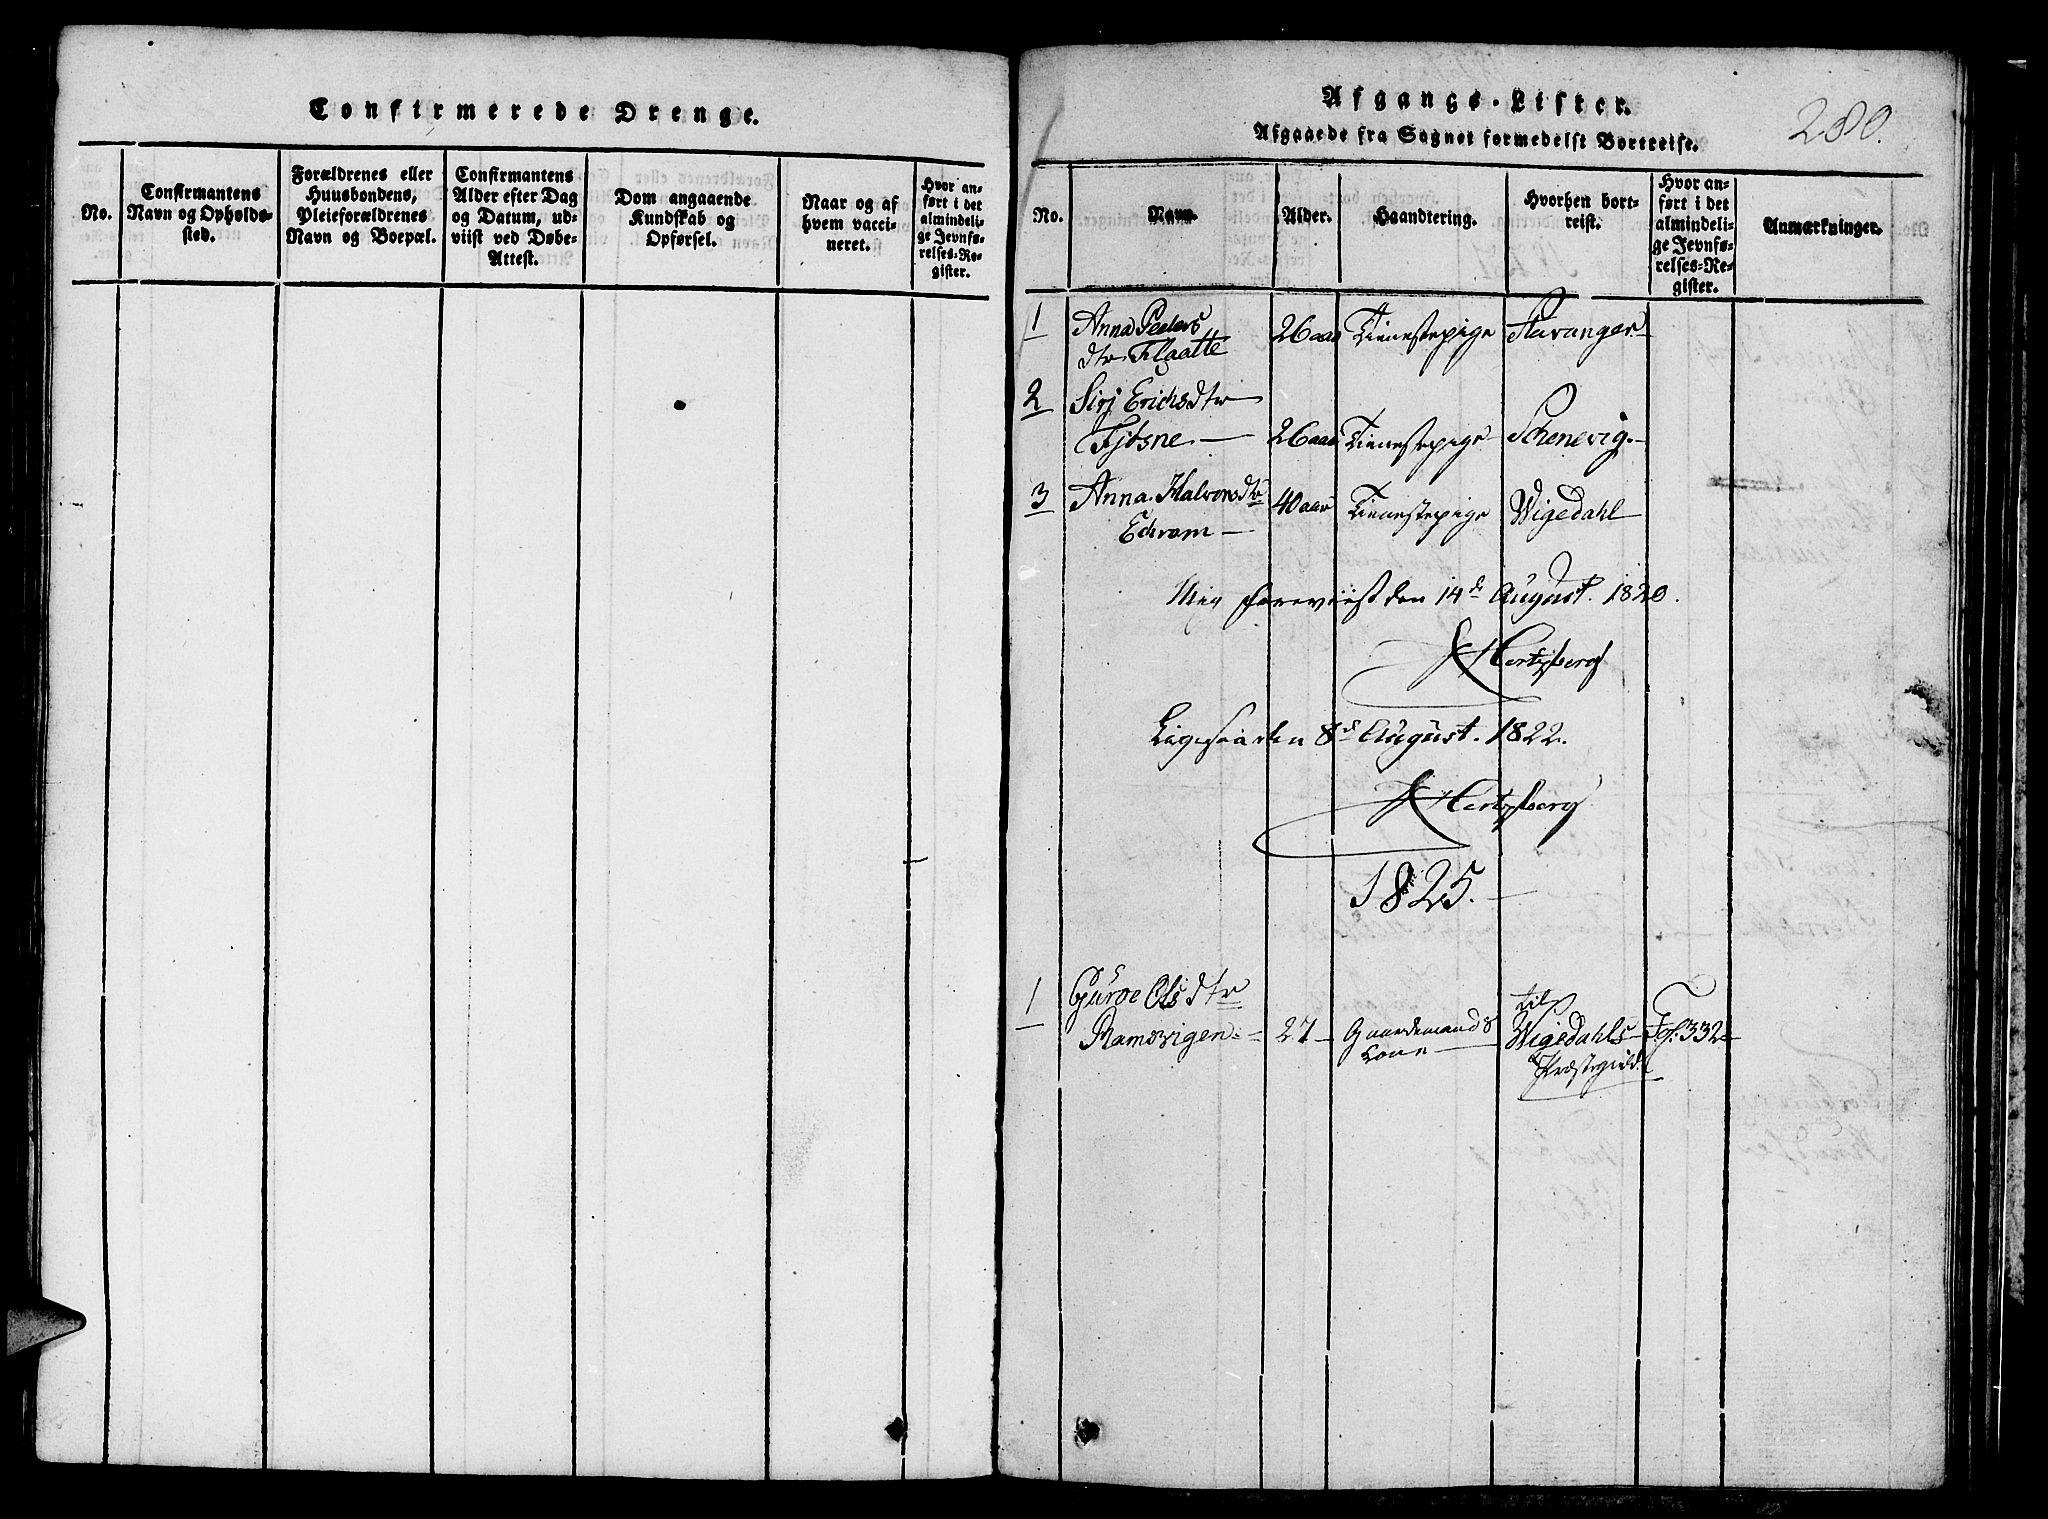 Confirmerede Drenge.
No.
Confirmantens
Navn og Opholds-
sted.
Forældrenes eller
Huusbondens,
Pleieforældrenes
Navn og Boepæl.
Confirmantens
Alder efter Dag
og Datum, ud-
viist ved Døbe-
Attest.
Dom angaaende
Kundskab og
Opførsel.
Naar og af
hvem vacci-
neret.
Hvor an-
ført i det
almindeli-
ge Jevnfø-
relses-Re-
gister.
Afgangs-Lister.
280.
Afgaaede fra Sognet formedelst Bortreise.
No.
Navn.
Alder.
Haandtering.
Hvorhen bort-
reist.
Hvor an-
ført i det
almindeli-
ge Jevnfø-
relses-Re-
gister.
Anmærkninger.
1 Anna Peders 26 aar Tienestepige Stavanger
dtr Flaatte
2 Sirj Erichsdtr
Fjøsne 26 aar Tienestepige Schonevig
3 Anna Halvorsdtr 40 aar Tienestepige Wigedahl
Echrom
Mig foreviist den 14de August. 1820.
Hertzberg
Ligesaa den 8de August. 1822.
Hertzberg
1825.
1 Guroe Olsdtr til
Ramsvigen 27 Gaardemands Wigedahls Fol. 332
Kone Præstegield